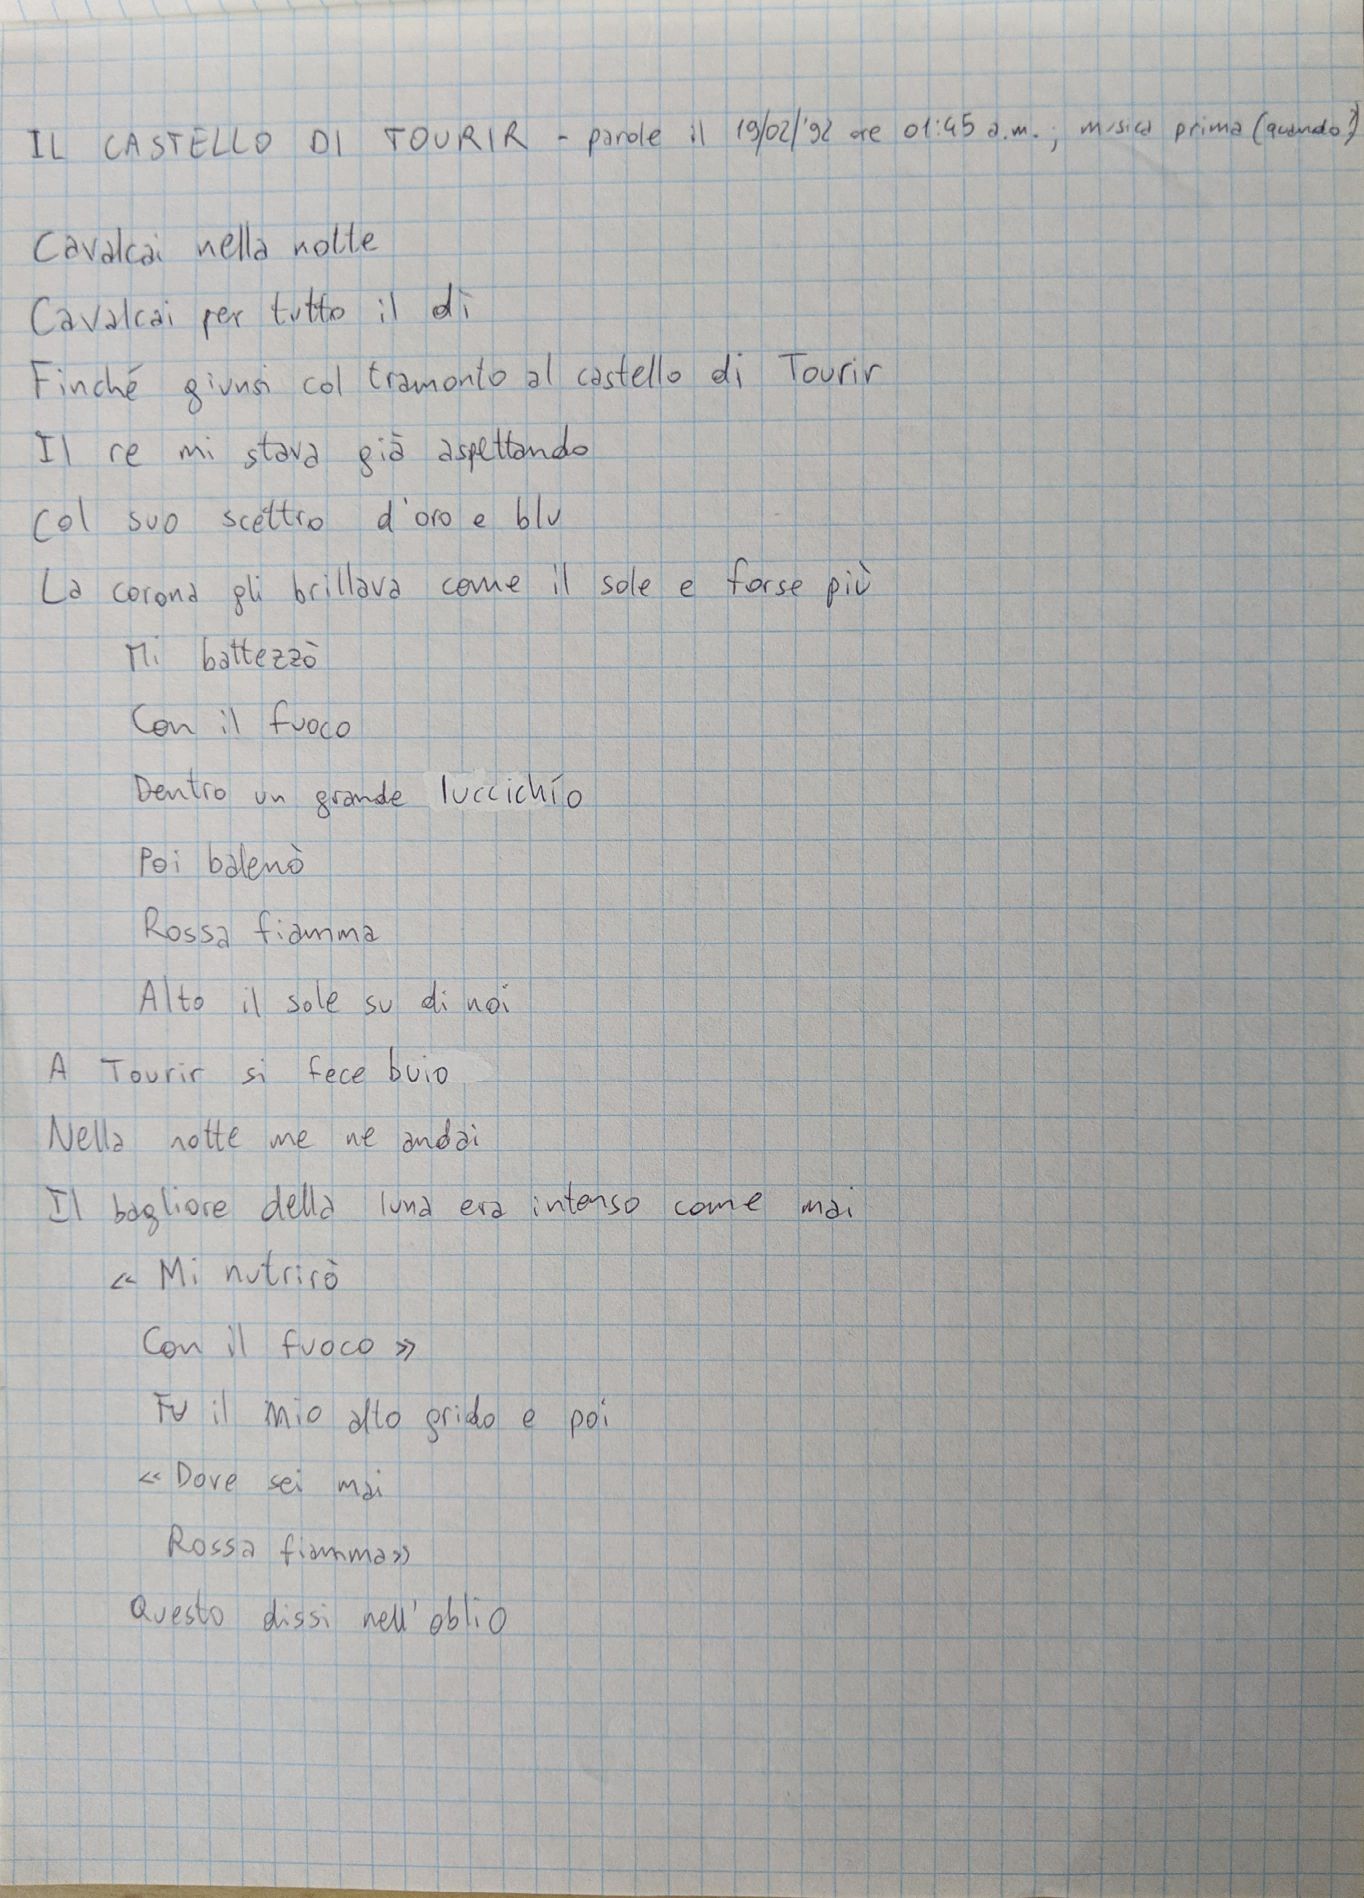 IL CASTELLO DI TOURIR - parole il 19/02/'92 ore 01:45 a.m.; musica prima (quando?)
Cavalcai nella notte
Cavalcai per tutto il dì
Finché giunsi col tramonto al castello di Tourir
Il re mi stava già aspettando
Col suo scettro d'oro e blu
La corona gli brillava come il sole e forse più
Mi battezzò
Con il fuoco
Dentro un grande luccichío
Poi balenò
Rossa fiamma
Alto il sole su di noi
A Tourir si fece buio
Nella notte me ne andai
Il bagliore della luna era intenso come mai
« Mi nutrirò
Con il fuoco »
Fu il mio alto grido e poi
« Dove sei mai
Rossa fiamma»
Questo dissi nell'oblio